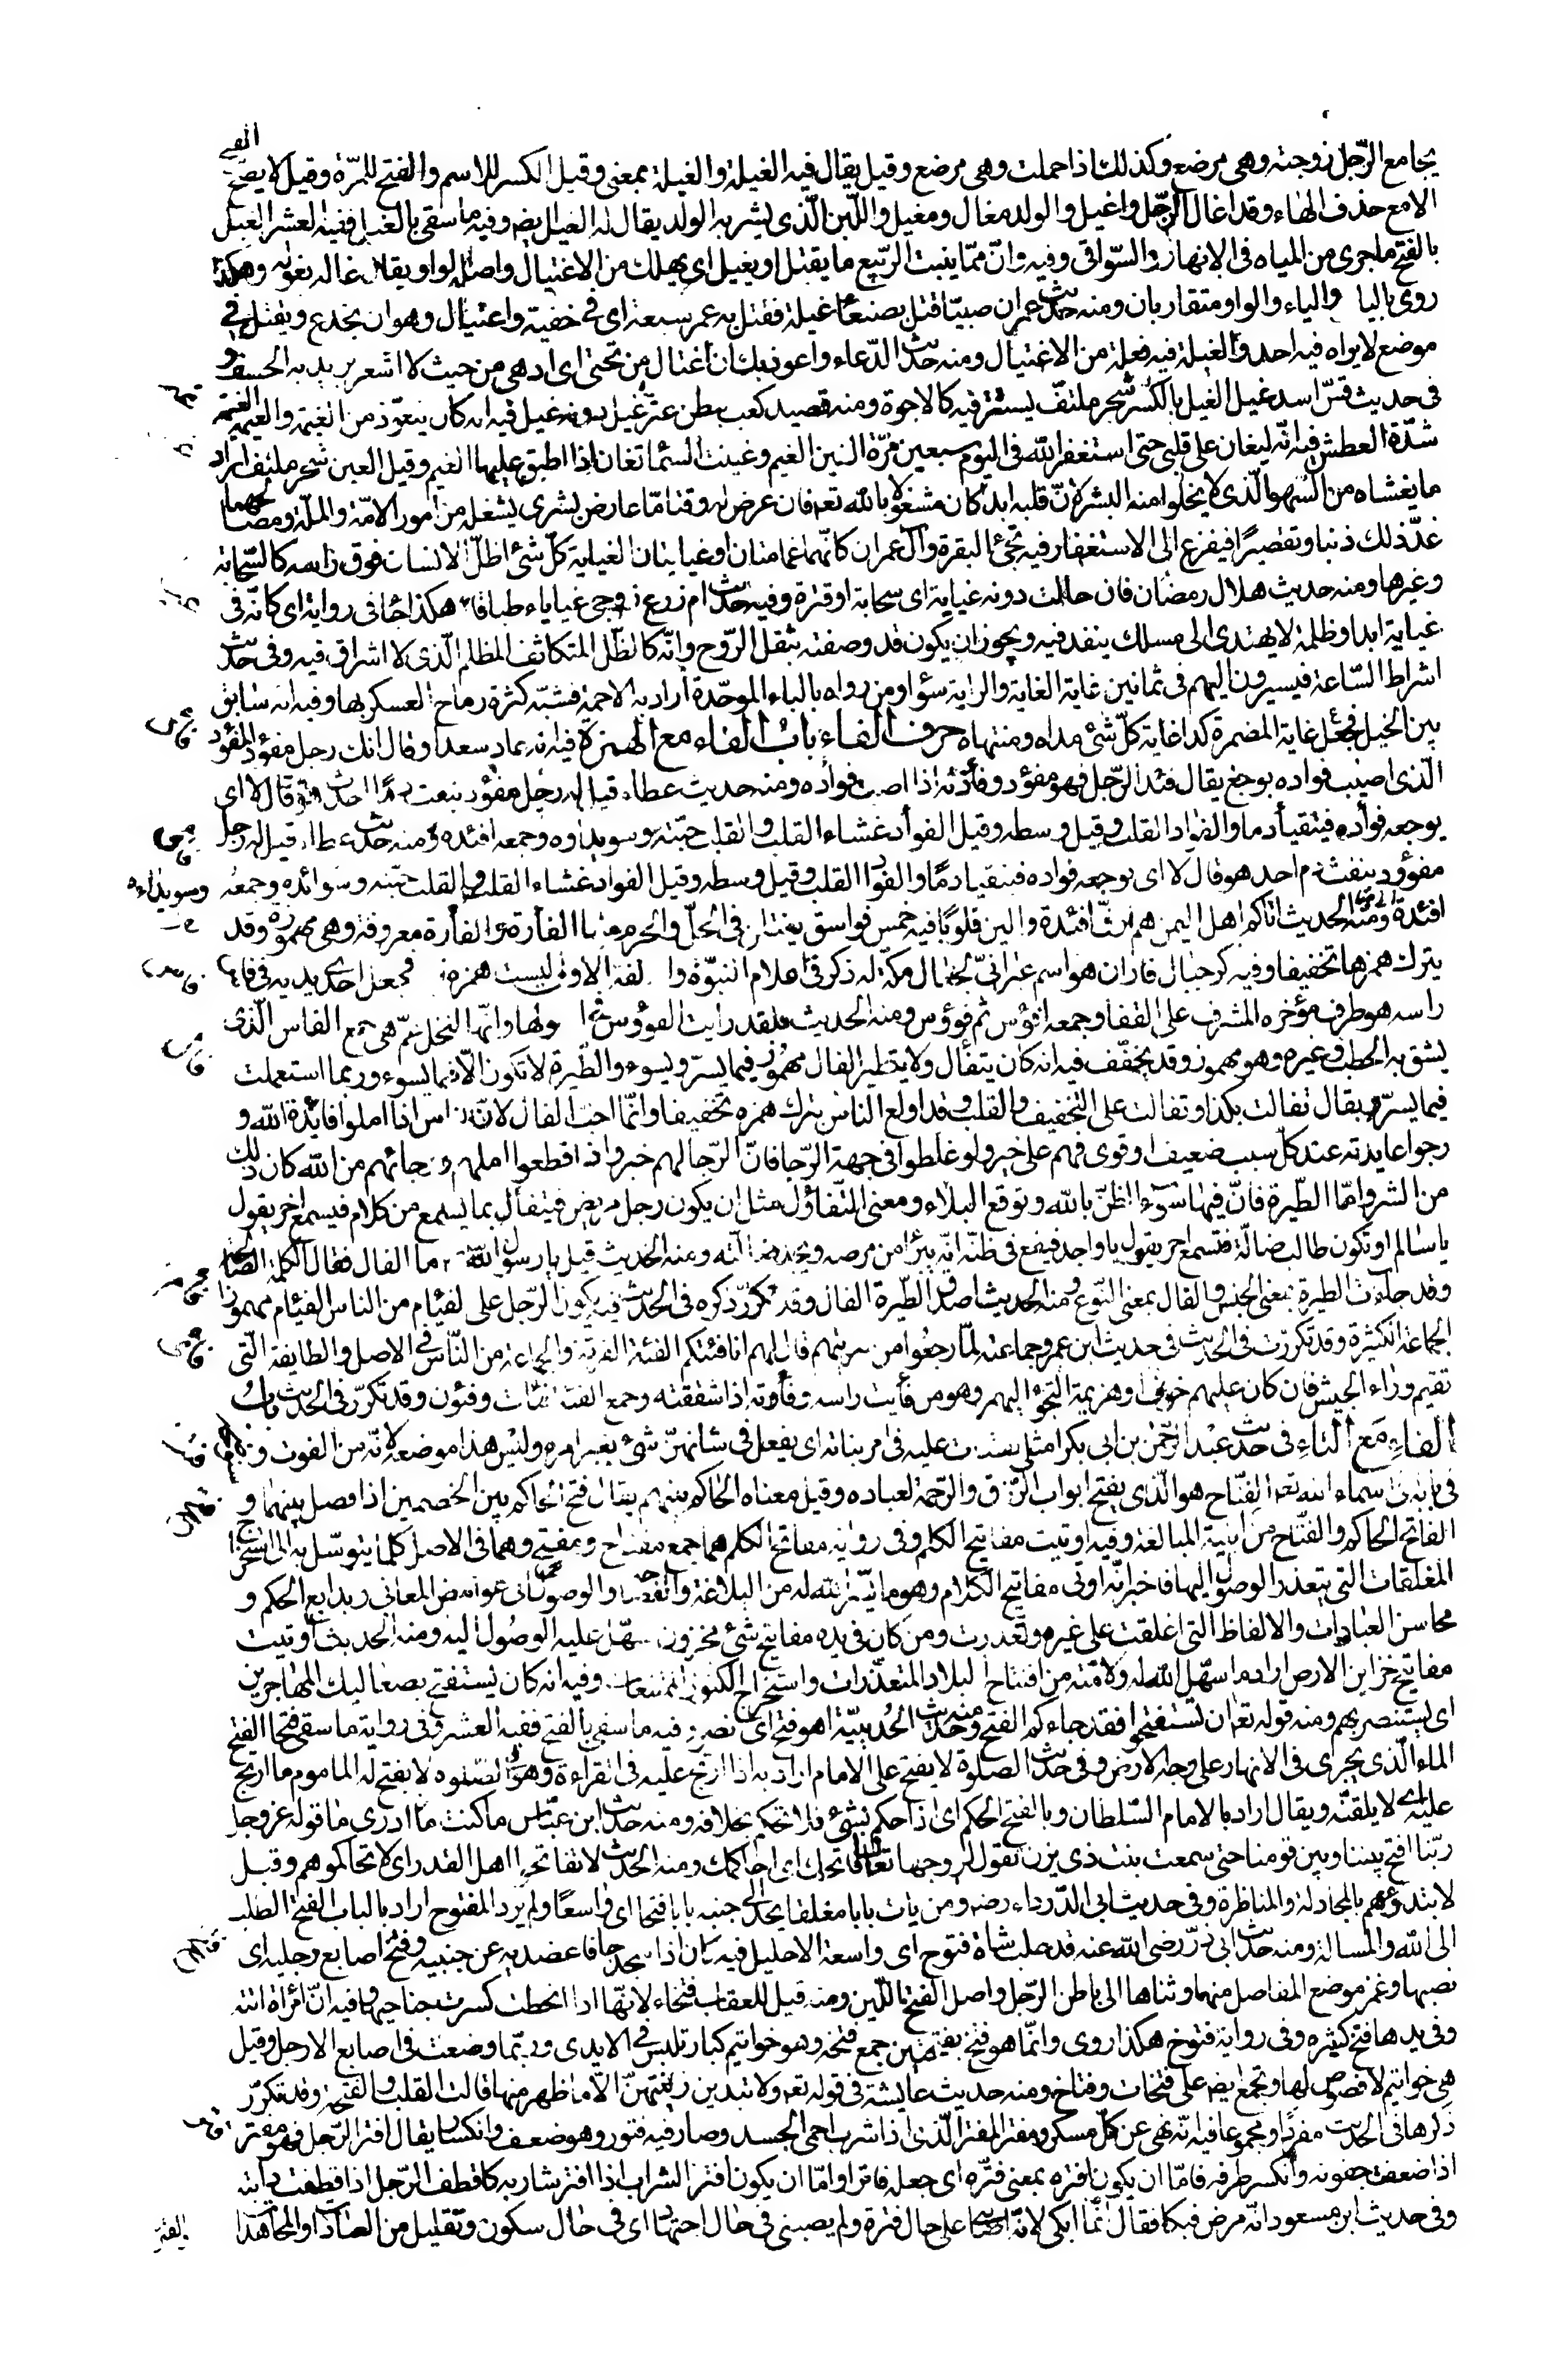 يجامع الرّجل زوجته وهى مرضع وكذلك اذا حملت وهى مرضع وقيل يقال فيه الغيلة والغيلة بمعنى وقيل الكسر للاسم والفتح للمرّة وقيل لا يصح الفتح
الا مع حذف الهاء وقد اغال الرّجل واغيل والولد مغال ومغيل واللّبن الّذى يشربه الولد يقال له الغيل ايض وفيه ما سقى بالغيل ففيه العشر الغيل
بالفتح ما جرى من المياه فى الانهار والسّواقى وفيه وانّ ممّا ينبت الرّبيع ما يقتل او يغيل اى يهلك من الاغتيال واصله الواو يقال غاله يغوله وهكذا
روى بالياء والياء والواو متقاربان ومنه حديث عمر ان صبيّا قتل بصنعاء غيلة فقتل به عمر سبعة اى فى خفية واغتيال وهو ان يخدع ويقتل فى
موضع لا يراه فيه احد والغيلة فيه فعلة من الاغتيال ومنه حديث الدّعاء واعوذ بك ان اغتال من تحتى اى ادهى من حيث لا اشعر يريد به الخسف و
فى حديث قسّ اسد غيل الغيل بالكسر شجر ملتفّ يستتر فيه كالاجمة ومنه قصيد كعب ببطن عثّر غيل دونه غيل فيه انه كان يتعوّذ من الغيمة والعيمة الغيمة
شدّة العطش فيه انّه ليغان على قلبى حتى استغفر الله فى اليوم سبعين مرّة الغين الغيم وغينت السّماء تغان اذا اطبق عليها الغيم وقيل الغين شجر ملتف اراد
ما يغشاه من السّهو الّذى لا يخلوا منه البشر لانّ قلبه ابدا كان مشغولا بالله تعه فان عرض له وقتا مّا عارض بشرى يشغله من امور الامّة والملّة ومصالحهما
عدّ ذلك ذنبا وتقصيرًا فيفزع الى الاستغفار فيه تجئ البقرة وآل عمران كانّهما غمامتان او غيايتان الغياية كلّ شئ اظلّ الانسان فوق راسه كالسّحابة
وغيرها ومنه حديث هلال رمضان فان حالت دونه غياية اى سحابة او قترة وفيه حديث ام زرع زوجى غياياء طباقاء هكذا جاء فى رواية اى كانّه فى
غياية ابدا وظلمة لا يهتدى الى مسلك ينفد فيه ويجوز ان يكون قد وصفته بثقل الرّوح وانّه كالظّل المتكاثف المظلم الّذى لا اشراق فيه وفى حديث
اشراط السّاعة فيسيرون اليهم فى ثمانين غاية الغاية والراية سواء ومن رواه بالباء الموحّدة اراد به الاجمة فشبّه كثرة رماح العسكر بها وفيه انه سابق
بين الخيل فجعل غاية المضمرة كذا غاية كلّ شئ مداه ومنتهاه حرف الفاء باب الفاء مع الهمزة فيه انه عاد سعدا وقال انك رجل مفؤد المفؤد
الّذى اصيب فواده بوجع يقال فئد الرّجل فهو مفؤد وفأدته اذا اصبت فواده ومنه حديث عطاء قيل له رجل مفؤد ينفث دمًا احدث هو قال لا اى
يوجعه فوأده فيتقيأ دما والفواد القلب وقيل وسطه وقيل الفوأد غشاء القلب والقلب حبّته وسويداوه وجمعه افئدة ومنه حديث عطاء قيل له رجل
مفؤود ينفث دم احدث هو قال لا اى يوجعه فواده فيتقيا دمًا والفواد القلب وقيل وسطه وقيل الفواد غشاء القلب والقلب حبّته وسوائده وجمعه وسويداءه
افئدة ومنه الحديث اتاكم اهل اليمن هم ارقّ افئدة والين قلوبًا فيه خمس فواسق يقتلن فى الحلّ والحرم منها الفأرة والفأرة معروفة وهى مهموزة وقد
يترك همزها تخفيفا وفيه ذكر جبال فاران هو اسم عبرانىّ لجبال مكّة له ذكر فى اعلام النبوّة والفه الاولى ليست همزة فجعل احدى يديه فى فاس
راسه هو طرف مؤخره المشرف على القفا وجمعه افؤس ثم فؤوس ومنه الحديث فلقد رايت الفؤوس فى اصولها وانّها النخل عمّ هى جمع الفاس الّذى
يشق به الحطب وغيره وهو مهموز وقد يخفّف فيه انه كان يتفأل ولا يتطير الفال مهموز فيما يسرّ ويسوء والطّيرة لا تكون الّا فيما يسوء وربما استعملت
فيما يسرّ يقال تفالت بكذا وتفالت على التخفيف والقلب وقد اولع الناس بترك همزه تخفيفا وانّما احبّ الفال لانّ الناس اذا املوا فايدة الله و
رجوا عايدته عند كلّ سبب ضعيف او قوى فهم على خير ولو غلطوا فى جهة الرّجاء فانّ الرّجا لهم خير واذا قطعوا املهم ورجائهم من الله كان ذلك
من الشر وامّا الطّيرة فانّ فيها سوء الظنّ بالله وتوقع البلاء ومعنى التّفاؤل مثل ان يكون رجل مريض فيتفأل بما يسمع من كلام فيسمع اخر يقول
يا سالم او تكون طالب ضالّة فتسمع اخر يقول يا واجد فيقع فى ظنّه انّه يبرأ من مرضه ويجد ضالّته ومنه الحديث قيل يا رسول الله ما الفال فقال الكلمة الصالحة
وقد جاءت الطيرة بمعنى الجنس والفال بمعنى النّوع ومنه الحديث اصدق الطّيرة الفال وقد تكرّر ذكره فى الحديث فيه يكون الرّجل على الفئام من الناس الفئام مهموزا
الجماعة الكثيرة وقد تكررت فى الحديث فى حديث ابن عمر وجماعته لمّا رجعوا من سريتهم قال لهم انا فئتكم الفئة الفرقة والجماعة من النّاس فى الاصل والطايفة الّتى
تقيم وراء الجيش فان كان عليهم خوف او هزيمة التجؤا اليهم وهو من فأيت راسه وفأوته اذا شققته وجمع الفئة فئات وفئون وقد تكرّر فى الحديث باب
الفاء مع التاء فى حديث عبد الرّحمن بن ابى بكر امثلى يفتات عليه فى امر بناته اى يفعل فى شانهنّ شئ بغير امره وليس هذا موضعه لانّه من الفوت و
فى اسماء الله تعه الفتّاح هو الّذى يفتح ابواب الرّزق والرّحمة لعباده وقيل معناه الحاكم بينهم يقال فتح الحاكم بين الخصمين اذا فصل بينهما و
الفاتح الحاكم والفتّاح من ابنية المبالغة وفيه اوتيت مفاتيح الكلم وفى رواية مفاتح الكلم هما جمع مفتاح ومفتح وهما فى الاصل كلّما يتوسّل به الى استخراج
المغلقات التى يتعذر الوصول اليها فاخبر انّه اوتى مفاتيح الكلام وهو ما يسّر الله له من البلاغة والفصاحة والوصول الى غوامض المعانى وبدايع الحكم و
محاسن العبادات والالفاظ التى اغلقت على غيره وتعذرت ومن كان فى يده مفاتيح شئ مخزون سهّل عليه الوصول اليه ومنه الحديث اوتيت
مفاتيح خزاين الارض اراد ما سهّل الله له ولامّته من افتتاح البلاد المتعذّرات واستخراج الكنوز الممتنعات وفيه انه كان يستفتح بصعاليك المهاجرين
اى يستنصر بهم ومنه قوله تعه ان تستفتحوا فقد جاءكم الفتح ومنه حديث الحديبيّة اهو فتح اى نصر وفيه ما سقى بالفتح ففيه العشر وفى رواية ما سقى فتحا الفتح
الماء الّذى يجرى فى الانهار على وجه الارض وفى حديث الصلوة لا يفتح على الامام اراد به اذا ارتج عليه فى القراءة وهو فى الصّلوة لا يفتح له الماموم ما ارتج
عليه اى لا يلقنّه ويقال اراد بالامام السّلطان وبالفتح الحكم اى اذا حكم بشئ فلا تحكم بخلافه ومنه حديث ابن عبّاس ما كنت ما ادرى ما قوله عز وجل
ربّنا افتح بيننا وبين قومنا حتى سمعت بنت ذى يزن تقول لزوجها تعال افاتحك اى احاكمك ومنه الحديث لا تفاتحوا اهل القدر اى لا تحاكموهم وقيل
لا تبتدؤهم بالمجادلة والمناظرة وفى حديث ابى الدّرداء رضه ومن يات بابا مغلقا يجد الى جنبه بابا فتحا اى واسعًا ولم يرد المفتوح اراد بالباب الفتح الطلب
الى الله والمسالة ومنه حديث ابى ذرّ رضى الله عنه قد حلب شاة فتوح اى واسعة الاحليل فيه كان اذا سجد جافا عضديه عن جنبيه وفتخ اصابع رجليه اى
نصبها وغمز موضع المفاصل منها وثناها الى باطن الرّجل واصل الفتخ اللّين ومنه قيل للعقاب فتخاء لانّها اذا انحطت كسرت جناحيها وفيه انّ امراة اتته
وفى يدها فتخ كثيره وفى رواية فتوخ هكذا روى وانّما هو فتخ بفتحتين جمع فتخه وهو خواتيم كبار تلبس فى الايدى وربّما وضعت فى اصابع الارجل وقيل
هى خواتيم لا فصوص لها وتجمع ايضه على فتخات وفتاخ ومنه حديث عايشة فى قوله تعه ولا تبدين زينتهنّ الّا ما ظهر منها قالت القلب والفتخة وقد تكرّر
ذكرها فى الحديث مفردًا ومجموعا فيه انّه نهى عن كلّ مسكر ومفتر المفتر الّذى اذا شرب احمى الجسد وصار فيه فتور وهو ضعف وانكسار يقال افتر الرّجل فهو مفتر
اذا ضعفت جفونه وانكسر طرفه فامّا ان يكون افتره بمعنى فتّره اى جعله فاترا وامّا ان يكون افتر الشراب اذا افتر شاربه كاقطف الرّجل اذا قطفت دابّته
وفى حديث ابن مسعود انّه مرض فبكا فقال انّما ابكى لانّه اصابنى على حال فترة ولم يصبنى فى حال اجتهاد اى فى حال سكون وتقليل من العبادات والمجاهدات